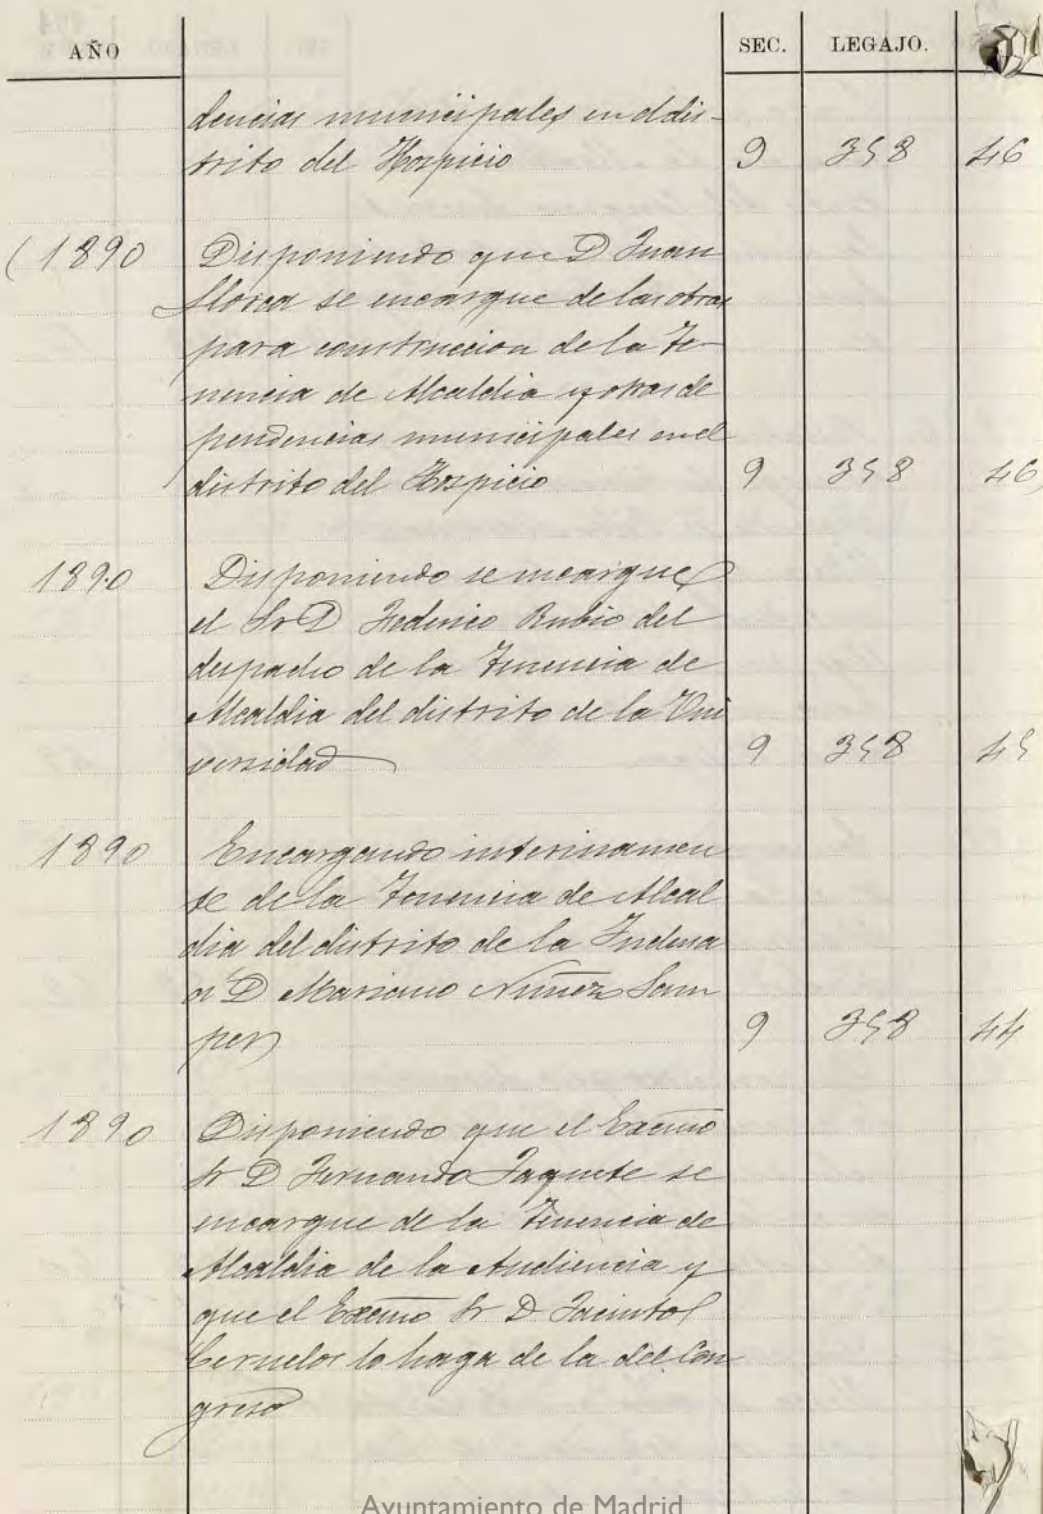 AÑO SEC. LEGAJO.
dencias municipales en el dis-
trito del Hospicio 9 358 46
(1890 Disponiendo que D Juan
Llorca se encargue de las obras
para construccion de la Te-
nencia de Alcaldia y otras de
pendencias municipales en el
distrito del Hospicio 9 358 46)
1890 Disponiendo se encargue
el Sr D Federico Rubio del
despacho de la Tenencia de
Alcaldia del distrito de la Uni
versidad 9 358 45
1890 Encargando interinamen
te de la Tenencia de Alcal
dia del distrito de la Inclusa
a D Mariano Nuñez Sam
per 9 358 44
1890 Disponiendo que el Excmo
Sr D Fernando Jaquete se
encargue de la Tenencia de
Alcaldia de la Audiencia y
que el Excmo Sr D Jacinto
Ceruelos lo haga de la del Con
greso
Ayuntamiento de Madrid